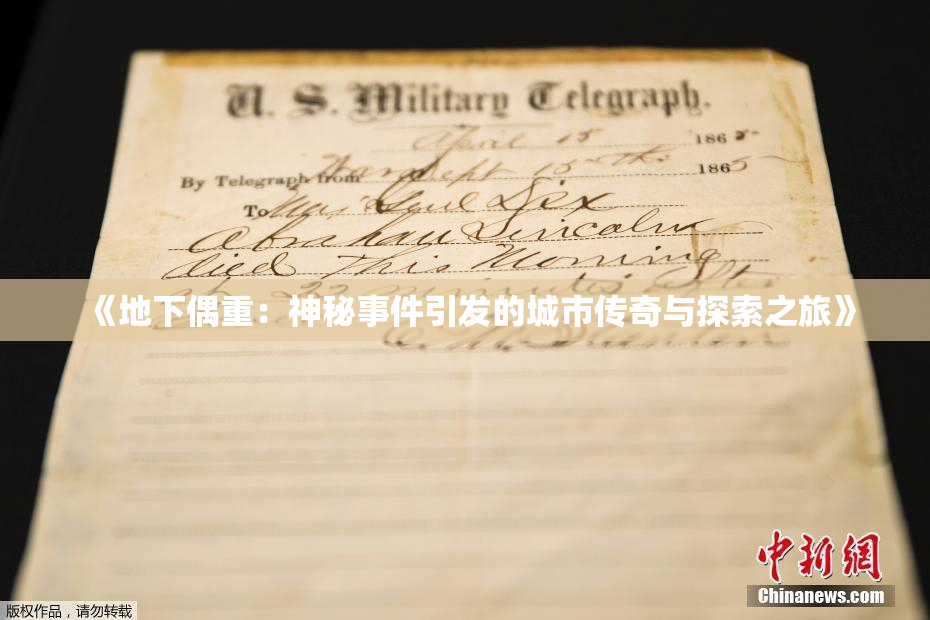 U. S. Military Telegraph.
April 15 1865
By Telegraph from War Dept 15th 1865
To Maj Genl Dix
Abraham Lincoln
died This Morning
at 22 minutes after
《地下偶重：神秘事件引发的城市传奇与探索之旅》
E. M. Stanton
中新網
Chinanews.com
版权作品，请勿转载